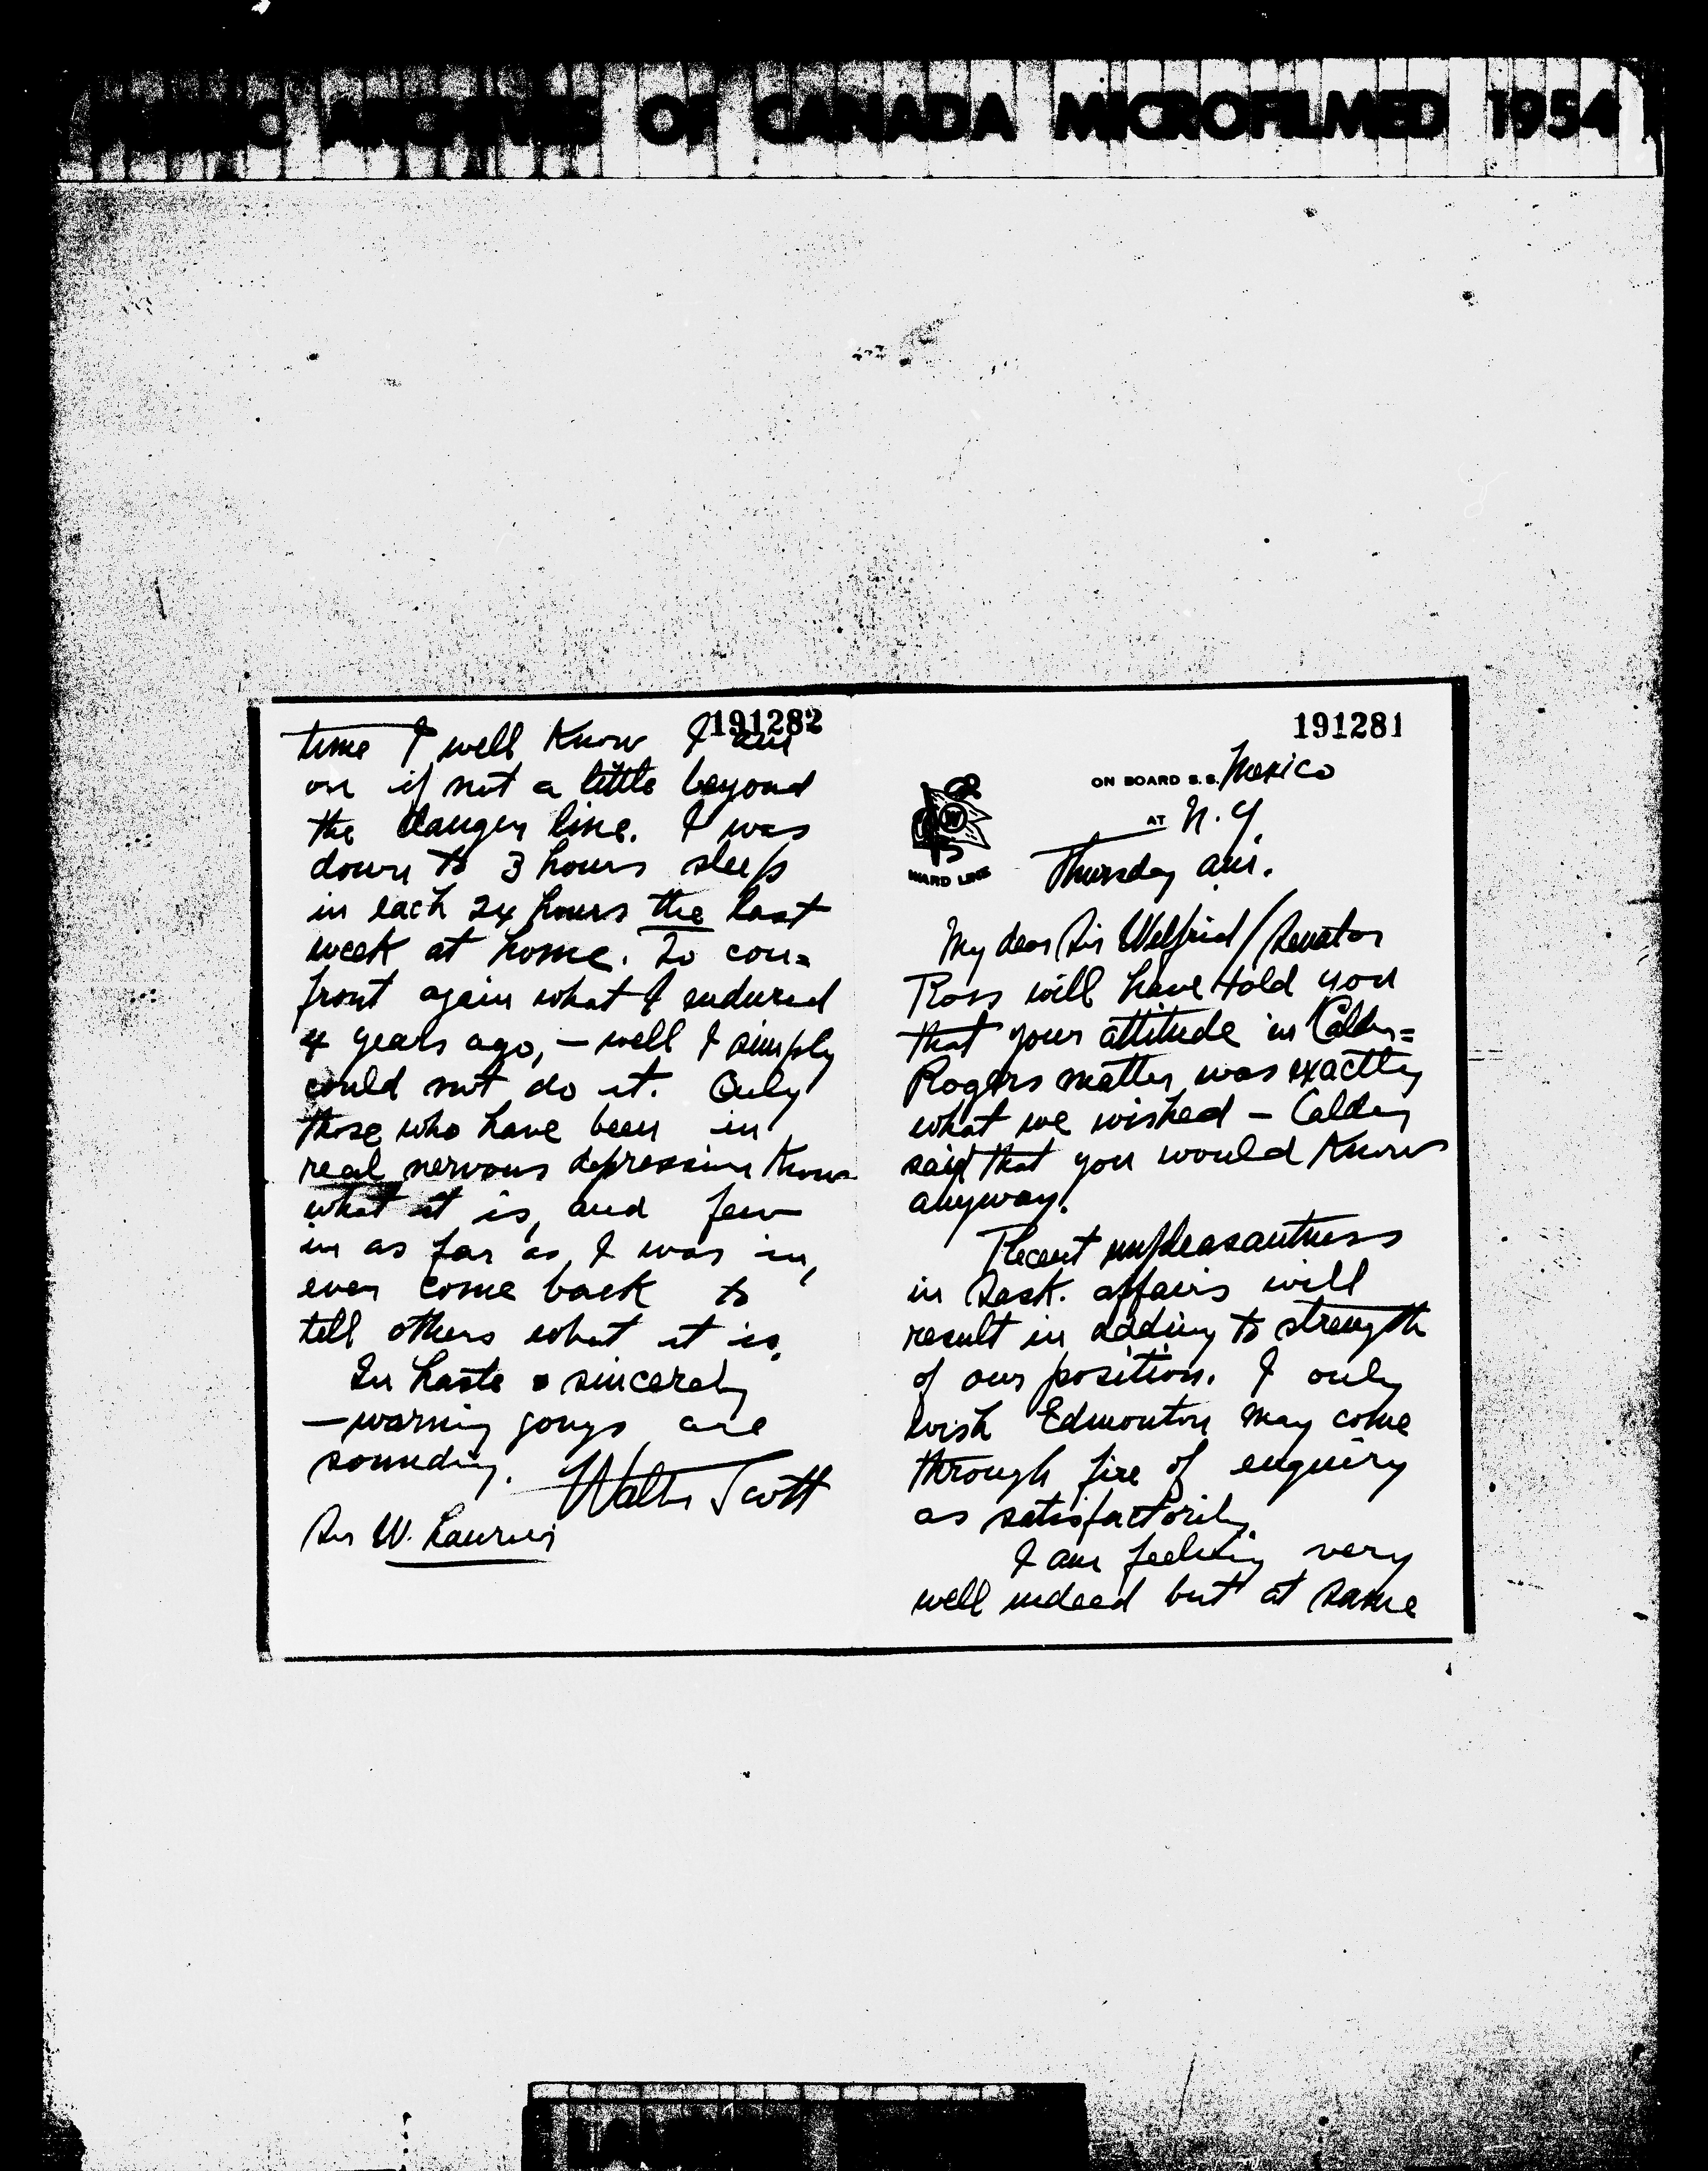 PUBLIC ARCHIVES OF CANADA MICROFILMED 1954
191281
ON BOARD S.S. Mexico
AT N.Y.
WARD LINE
Thursday a.m.
My dear Sir Wilfrid / Senator
Ross will have told you
that your attitude in Calder=
Rogers matter was exactly
what we wished – Calder
said that you would know
anyway.
Recent unpleasantness
in Sask. affairs will
result in adding to strength
of our position. I only
wish Edmonton may come
through fire of enquiry
as satisfactorily.
I am feeling very
well indeed but at same
191282
time I well know I am
on if not a little beyond
the danger line. I was
down to 3 hours sleep
in each 24 hours the last
week at home. To con=
front again what I endured
4 years ago, – well I simply
could not do it. Only
those who have been in
real nervous depression know
what it is, and few
in as far as I was in,
ever come back to
tell others what it is.
In haste & sincerely
– warning gongs are
sounding. Walter Scott
Sir W. Laurier